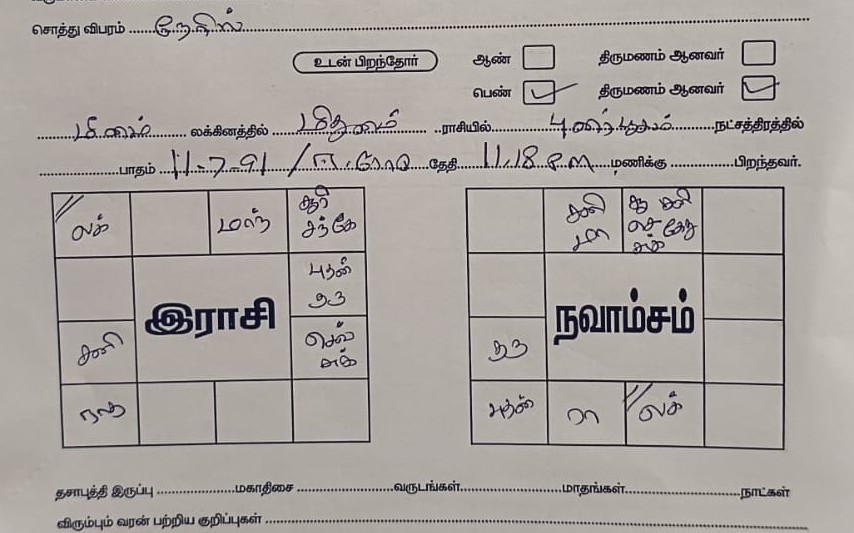 சொத்து விபரம் ......நேரில்......
உடன் பிறந்தோர் ஆண் திருமணம் ஆனவர்
பெண் ✓ திருமணம் ஆனவர் ✓
......மீனம்...... லக்கினத்தில் ......மிதுனம்...... ராசியில் ......புனர்பூசம்...... நட்சத்திரத்தில்
......பாதம் 11-7-91 / தேதி 11.18 P.m மணிக்கு ......பிறந்தவர்.
லக் மாந் சந்கே சனி மா கேது
புதன் குரு
இராசி நவாம்சம்
சனி செவ் சுக் குரு
ராகு புதன் ரா லக்
தசாபுத்தி இருப்பு ......மகாதிசை ......வருடங்கள்......மாதங்கள்......நாட்கள்
விரும்பும் வரன் பற்றிய குறிப்புகள் ......